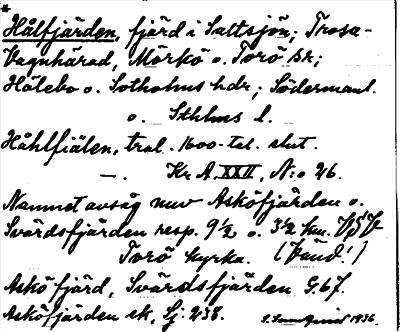 *
Hålfjärden, fjärd i Saltsjön; Trosa-
Vagnhärad, Mörkö o. Torö sn;
Hölebo o. Sotholms hdr; Södermanl.
o. Sthlms l.
Håhlfiälen, tral. 1600-tal. slut.
—. Kr. A. XXII, N:o 26.
Namnet avsåg nuv Asköfjärden o.
Svärdsfjärden resp. 9½ o. 3½ km. VSV
Torö kyrka. (Fänö!)
Askö fjärd, Svärdsfjärden G. 67.
Asköfjärden sk, Sj. 238.
1936.